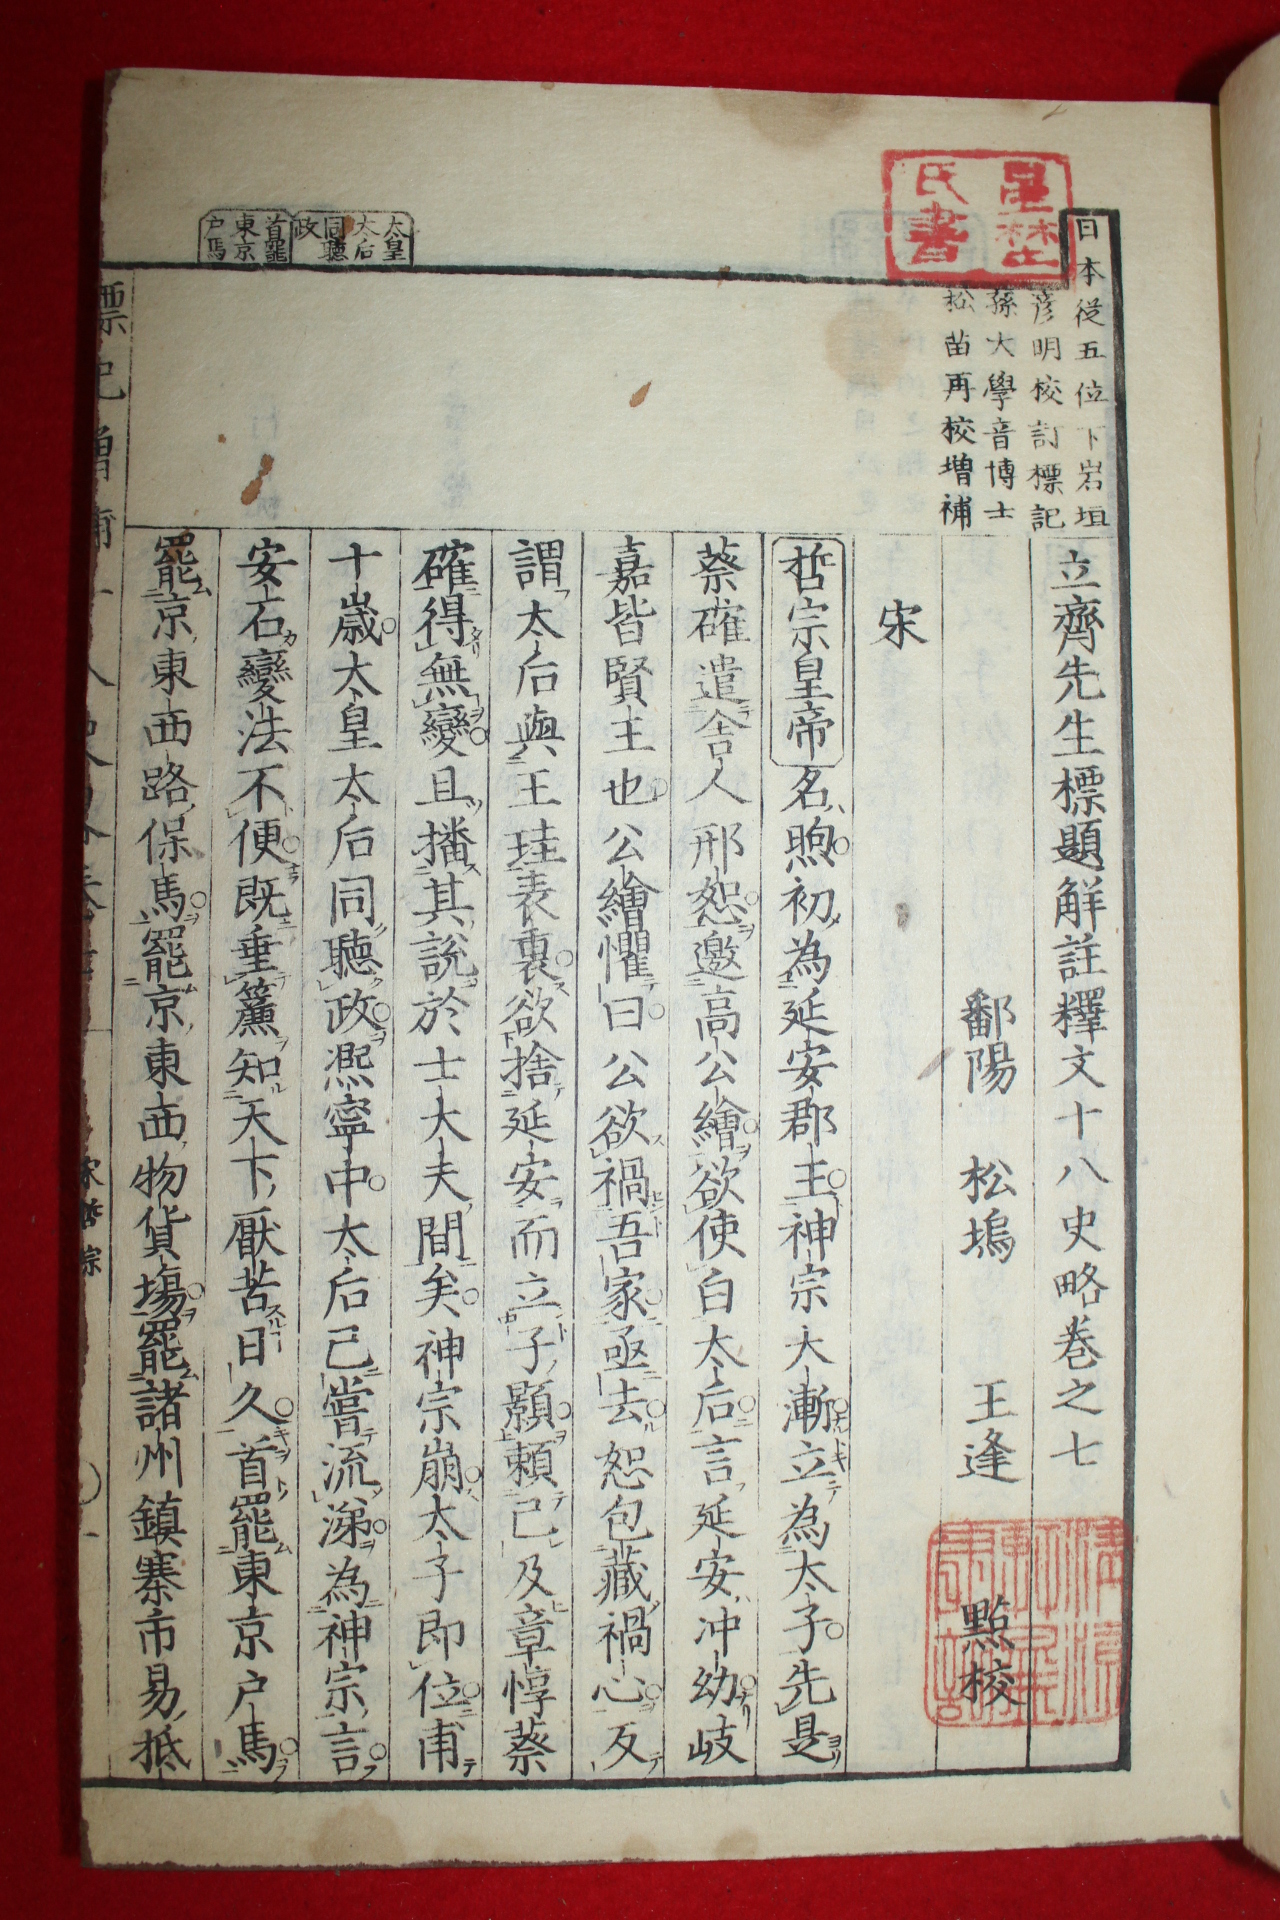 日本從五位下岩垣
彦明校訂標記
孫大學音博士
松苗再校増補
立齋先生標題解註釋文十八史略巻之七
鄱陽 松塢 王逢 點校
宋
哲宗皇帝名煦初為延安郡王神宗大漸立為太子先是
蔡確遣舎人邢恕邀高公繪欲使白太后言延安冲幼岐
嘉皆賢王也公繪懼曰公欲禍吾家亟去恕包藏禍心反
謂太后與王珪表裏欲捨延安而立子顥頼己及章惇蔡
確得無變且播其說於士大夫間矣神宗崩太子即位甫
十歳太皇太后同聽政熈寧中太后已嘗流涕為神宗言
安石變法不便既垂簾知天下厭苦日久首罷東京戸馬
罷京東西路保馬罷京東西物貨塲罷諸州鎮寨市易抵
太皇
太后
同聽
政
首罷
東京
戸馬
氏書